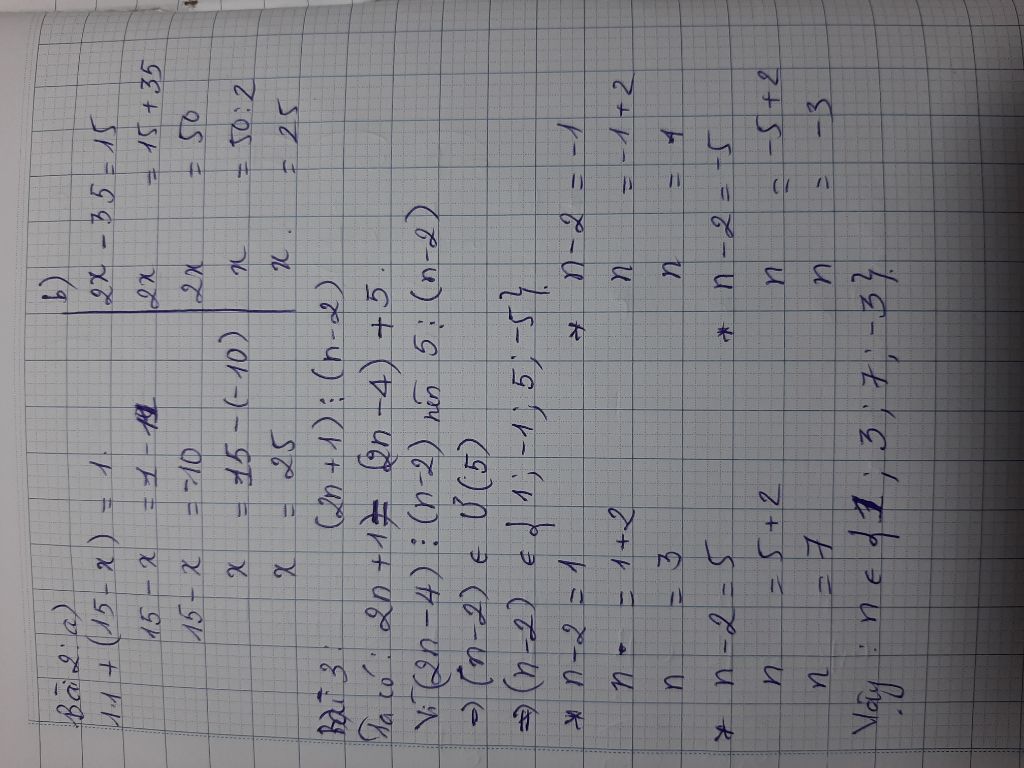 Bài 2: a)
11 + (15 - x) = 1.
15 - x = 1 - 11
15 - x = -10
x = 15 - (-10)
x = 25
b)
2x - 35 = 15
2x = 15 + 35
2x = 50
x = 50 : 2
x = 25
Bài 3: (2n + 1) ⋮ (n - 2)
Ta có: 2n + 1 = (2n - 4) + 5.
Vì (2n - 4) ⋮ (n - 2) nên 5 ⋮ (n - 2)
⇒ (n - 2) ∈ Ư(5)
⇒ (n - 2) ∈ {1; -1; 5; -5}.
* n - 2 = 1
n = 1 + 2
n = 3
* n - 2 = 5
n = 5 + 2
n = 7
* n - 2 = -1
n = -1 + 2
n = 1
* n - 2 = -5
n = -5 + 2
n = -3
Vậy: n ∈ {1; 3; 7; -3}.